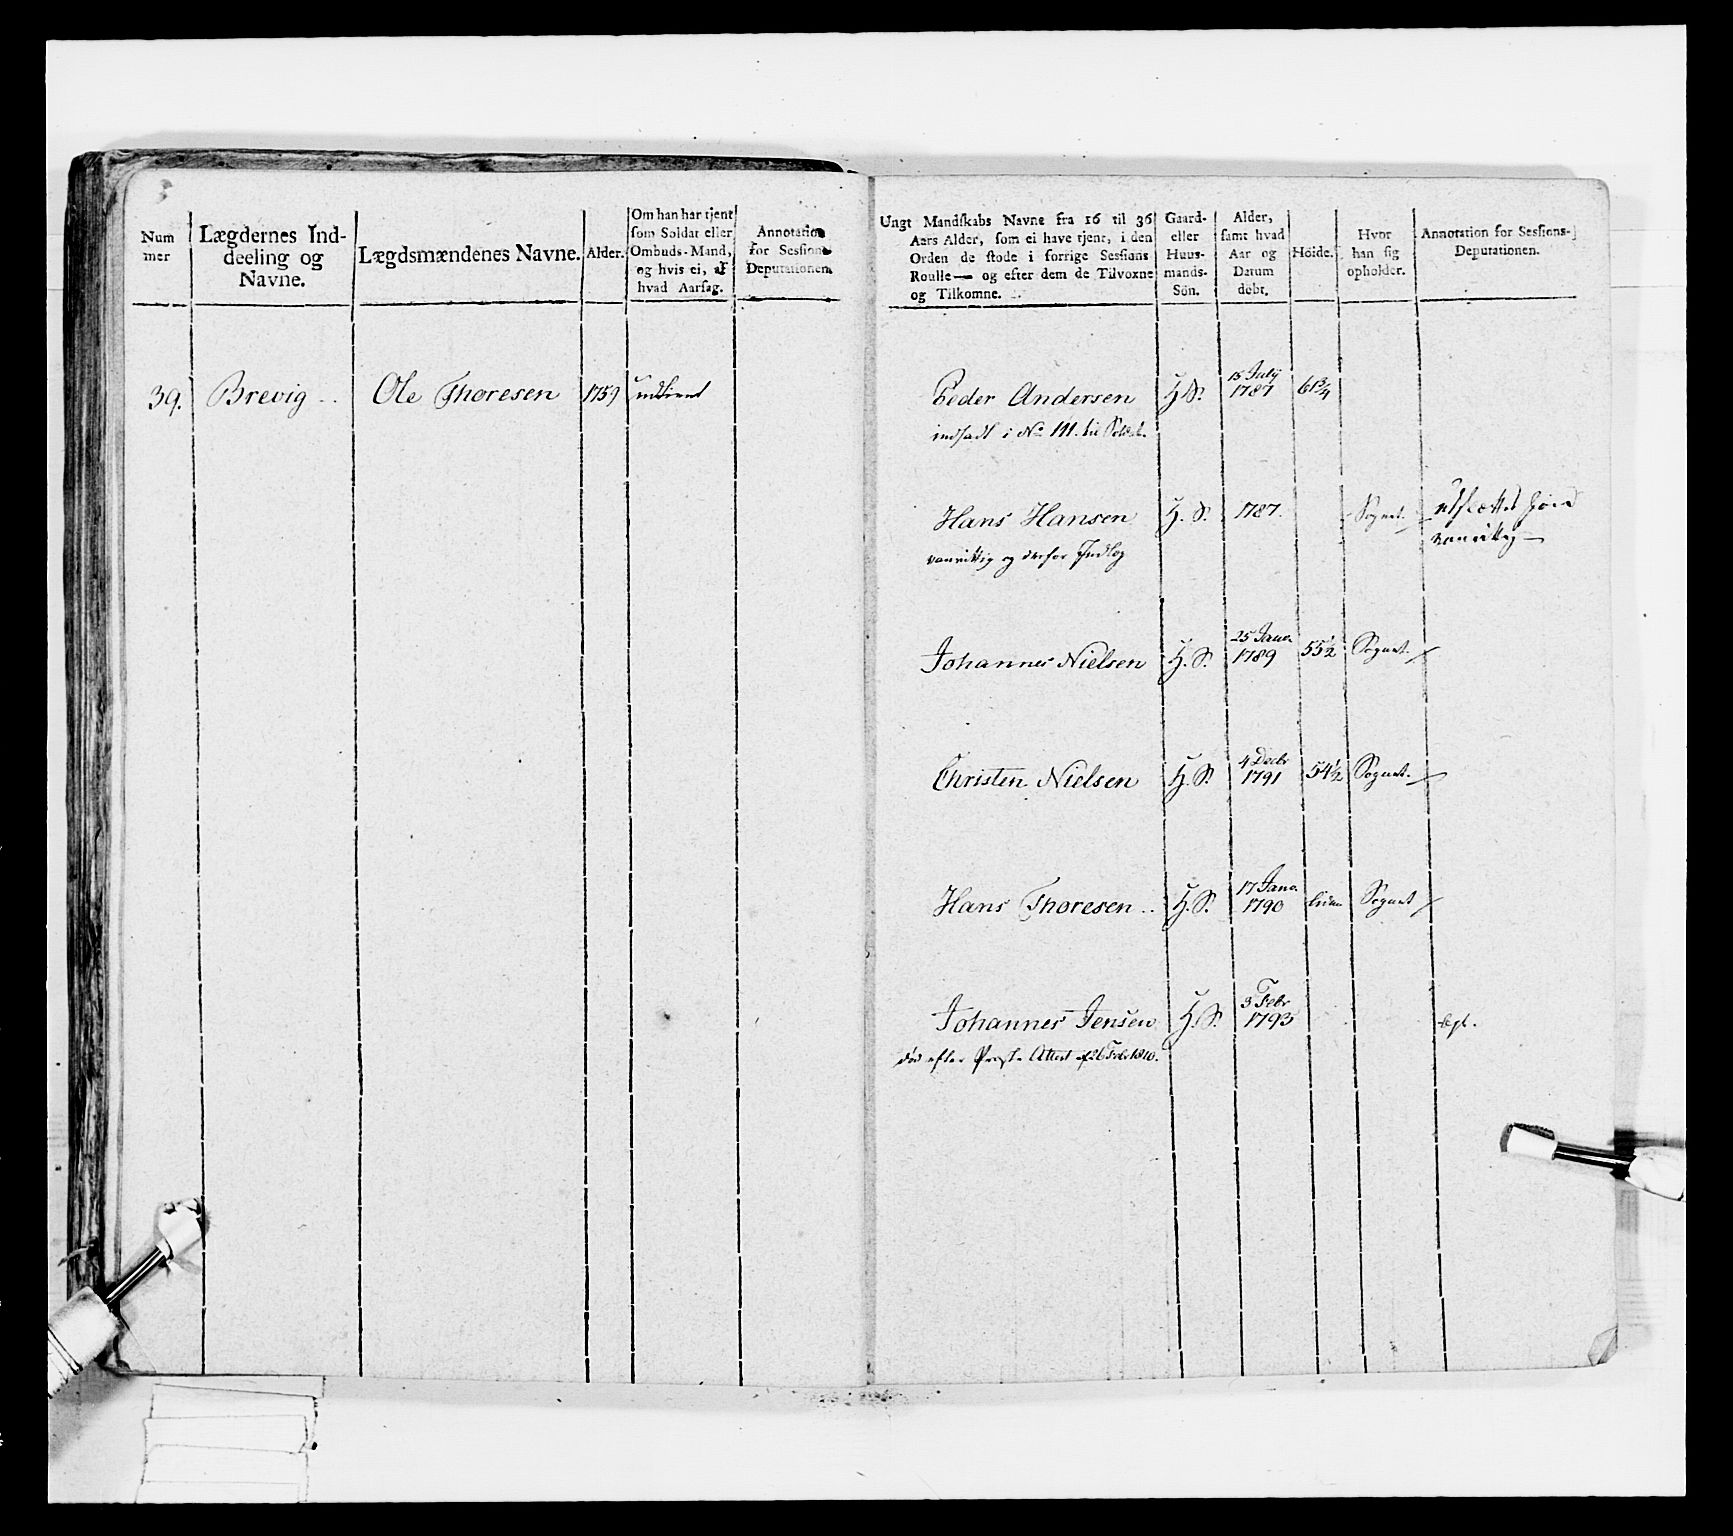 Num
mer
Lægdernes Ind-
deeling og
Navne.
Lægdsmændenes Navne.
Alder.
Om han har tjent
som Soldat eller
Ombuds-Mand,
og hvis ei, af
hvad Aarsag.
Annotation
for Sessions
Deputationen.
Ungt Mandskabs Navne fra 16 til 36
Aars Alder, som ei have tjent, i den
Orden de stode i forrige Sessions
Roulle— og efter dem de Tilvoxne
og Tilkomne.
Gaard-
eller
Huus-
mands-
Søn.
Alder,
samt hvad
Aar og
Datum
døbt.
Høide.
Hvor
han sig
opholder.
Annotation for Sessions-
Deputationen.
39. Brevig .. Ole Thoresen 1759 udtient
Peder Andersen H.S. 15 July 1787 61 3/4
indsadt i No 111. til Soldat.
Hans Hansen H. S. 1787. Sognet.
vanvittig og derfor Indlog
vanvittig —
Johannes Nielsen H. S. 25 Janr. 1789 55 1/2 Sognet.
Christen Nielsen H. S. 4 Decbr 1791 54 1/2 Sognet.
Hans Thoresen .. H. S. 17 Janr. 1790 liden Sognet
Johannes Jensen H. S. 3 Febr 1793
død efter Præste Attest af 26 Febr 1810.